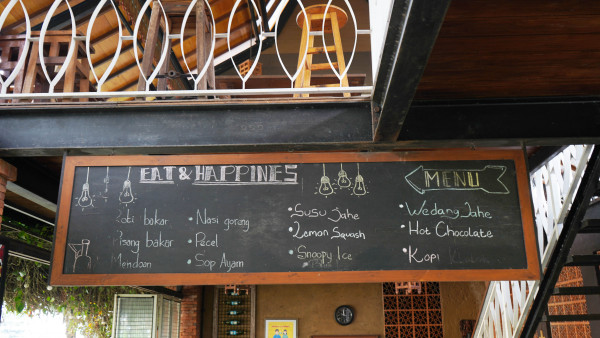 EAT & HAPPINES
MENU
Roti bakar
Pisang bakar
Mendoan
• Nasi goreng
• Pecel
• Sop Ayam
• Susu Jahe
• Lemon Squash
• Snoopy Ice
• Wedang Jahe
• Hot Chocolate
• Kopi